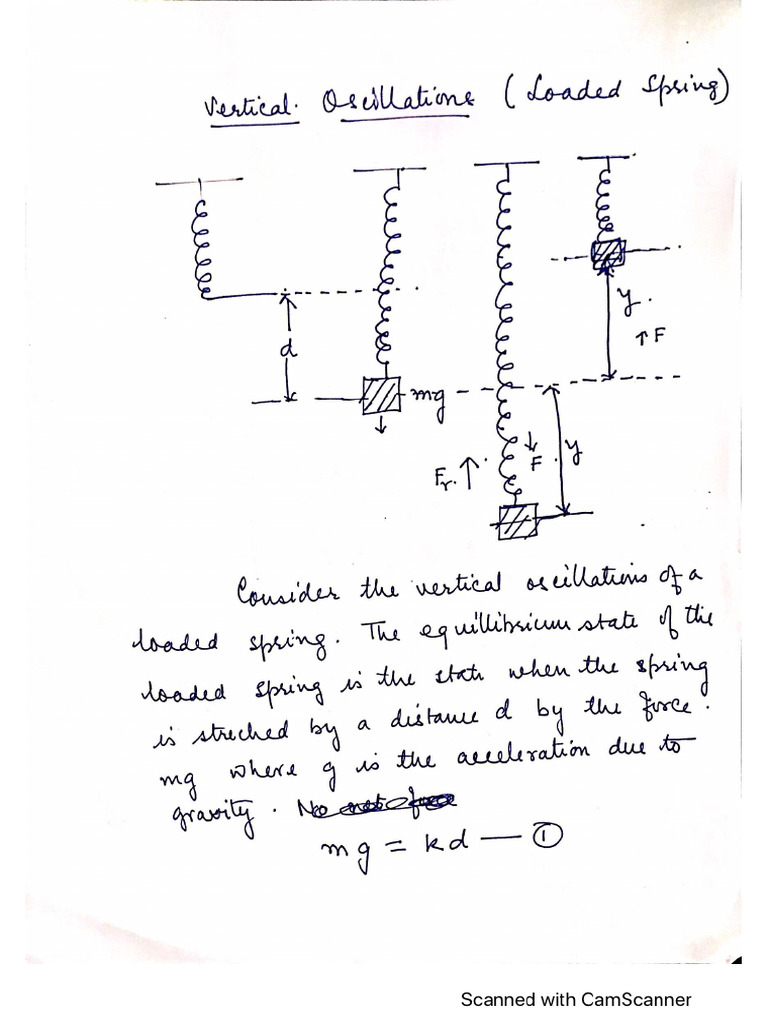 Vertical Oscillations (Loaded Spring)
d
mg
Fr
F
y
y
F
Consider the vertical oscillations of a
loaded spring. The equillibrium state of the
loaded spring is the state when the spring
is streched by a distance d by the force
mg where g is the acceleration due to
gravity. No net force
mg = kd — ①
Scanned with CamScanner